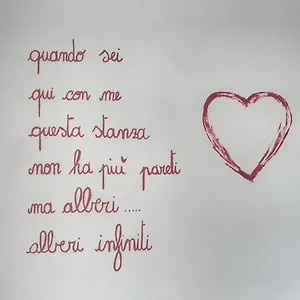 quando sei
qui con me
questa stanza
non ha più pareti
ma alberi.....
alberi infiniti